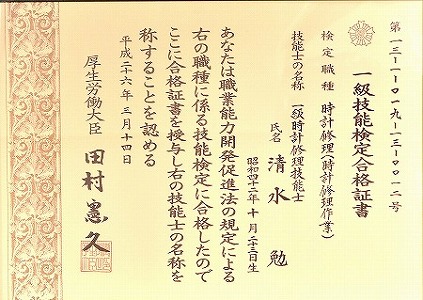 第一三-一-一〇一九-一三-〇〇一二号
一級技能検定合格証書
検定職種 時計修理(時計修理作業)
技能士の名称 一級時計修理技能士
氏名 清水 勉
昭和四十二年十月二十三日生
あなたは職業能力開発促進法の規定による
右の職種に係る技能検定に合格したので
ここに合格証書を授与し右の技能士の名称を
称することを認める
平成二十六年三月十四日
厚生労働大臣 田村憲久